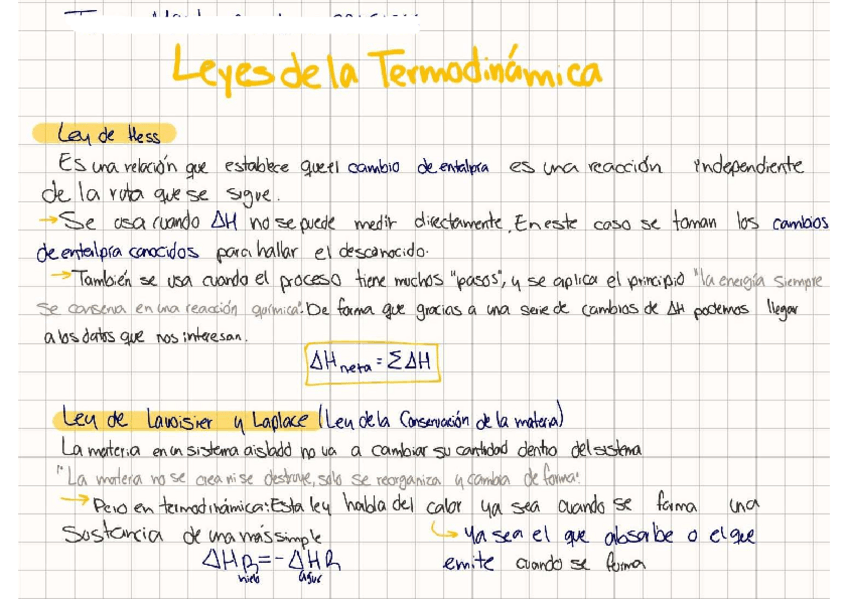 Leyes de la Termodinámica
Ley de Hess
Es una relación que establece que el cambio de entalpía es una reacción independiente
de la ruta que se sigue.
→ Se usa cuando ΔH no se puede medir directamente. En este caso se toman los cambios
de entalpía conocidos para hallar el desconocido.
→ También se usa cuando el proceso tiene muchos "pasos", y se aplica el principio "la energía siempre
se conserva en una reacción química". De forma que gracias a una serie de cambios de ΔH podemos llegar
a los datos que nos interesan.
ΔH neta = ΣΔH
Ley de Lavoisier y Laplace (Ley de la Conservación de la materia)
La materia en un sistema aislado no va a cambiar su cantidad dentro del sistema
"La materia no se crea ni se destruye, solo se reorganiza y cambia de forma."
→ Pero en termodinámica: Esta ley habla del calor ya sea cuando se forma una
sustancia de una más simple
↳ Ya sea el que absorbe o el que
emite cuando se forma
ΔHR = - ΔHR
hielo agua